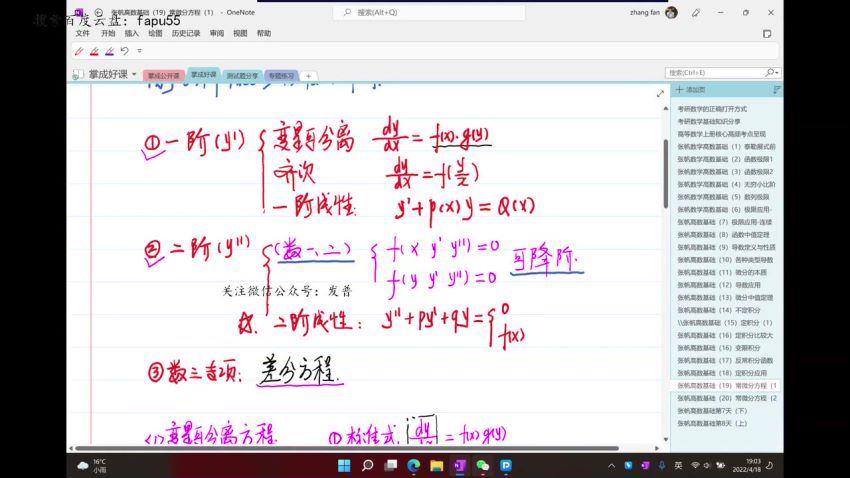 搜索百度云盘：fapu55
张帆高数基础（19）常微分方程（1） - OneNote
搜索(Alt+Q)
zhang fan
文件 开始 插入 绘图 历史记录 审阅 视图 帮助
掌成好课 掌成公开课 掌成好课 测试题分享 专题练习 +
搜索(Ctrl+E)
添加页
考研数学的正确打开方式
考研数学基础知识分享
高等数学上册核心高频考点呈现
张帆数学高数基础（1）泰勒展式前
张帆数学高数基础（2）函数极限1
张帆数学高数基础（3）函数极限2
张帆数学高数基础（4）无穷小比阶
张帆数学高数基础（5）数列极限
张帆数学高数基础（6）极限应用-
张帆高数基础（7）极限应用-连续
张帆高数基础（8）函数中值定理
张帆高数基础（9）导数定义与性质
张帆高数基础（10）各种类型导数
张帆高数基础（11）微分的本质
张帆高数基础（12）导数应用
张帆高数基础（13）微分中值定理
张帆高数基础（14）不定积分
\\张帆高数基础（15）定积分（1）
张帆高数基础（16）定积分比较大
张帆高数基础（16）变限积分
张帆高数基础（17）反常积分函数
张帆高数基础（18）定积分应用
张帆高数基础（19）常微分方程（1
张帆高数基础（20）常微分方程（2
张帆高数基础第7天（下）
张帆高数基础第8天（上）
① 一阶(y') { 变量可分离 dy/dx = f(x)·g(y)
齐次 dy/dx = f(y/x)
一阶线性: y'+p(x)y = Q(x)
② 二阶(y'') { (数一、二) { f(x y' y'')=0 可降阶.
f(y y' y'')=0
关注微信公众号：发普
☆. 二阶线性: y''+py'+qy = { 0
f(x)
③ 数三专项: 差分方程.
(1) 变量可分离方程. ① 标准式. dy/dx = f(x)g(y)
16°C
小雨
英
19:03
2022/4/18